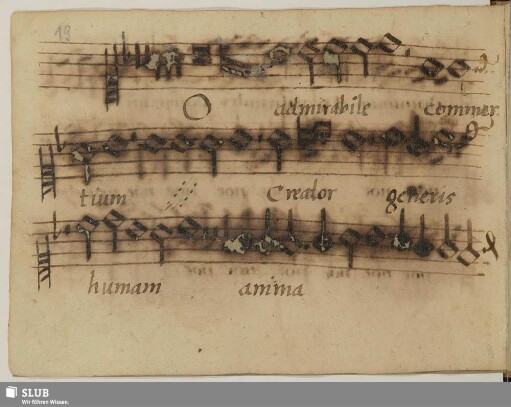 19
O admirabile commer
tium Creator generis
humani anima
SLUB
Wir führen Wissen.